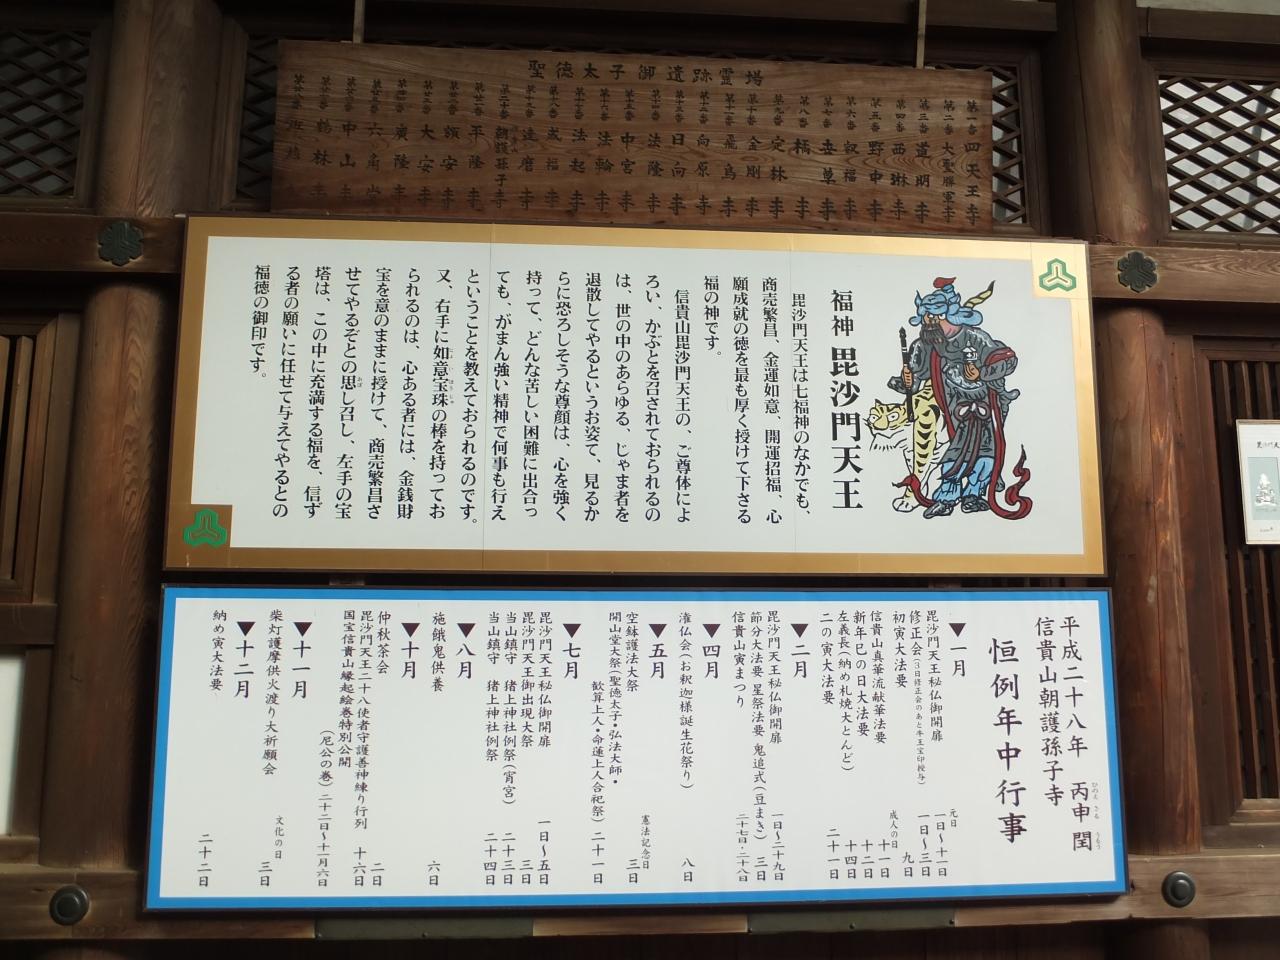 聖徳太子御遺跡霊場
第一番 四天王寺
第二番 大聖勝軍寺
第三番 道明寺
第四番 西琳寺
第五番 野中寺
第六番 叡福寺
第七番
第八番 橘寺
第九番 定林寺
金剛寺
飛鳥寺
向原寺
日向寺
法隆寺
中宮寺
法輪寺
法起寺
成福寺
達磨寺
朝護孫子寺
平隆寺
額安寺
大安寺
廣隆寺
六角堂
中山寺
鶴林寺
福神 毘沙門天王
毘沙門天王は七福神のなかでも、
商売繁昌、金運如意、開運招福、心
願成就の徳を最も厚く授けて下さる
福の神です。
信貴山毘沙門天王の、ご尊体によ
ろい、かぶとを召されておられるの
は、世の中のあらゆる、じゃま者を
退散してやるというお姿で、見るか
らに恐ろしそうな尊顔は、心を強く
持って、どんな苦しい困難に出合っ
ても、がまん強い精神で何事も行え
ということを教えておられるのです。
又、右手に如意宝珠の棒を持ってお
られるのは、心ある者には、金銭財
宝を意のままに授けて、商売繁昌さ
せてやるぞとの思し召し、左手の宝
塔は、この中に充満する福を、信ず
る者の願いに任せて与えてやるとの
福徳の御印です。
平成二十八年 丙申 閏
信貴山朝護孫子寺
恒例年中行事
▼一月
毘沙門天王秘仏御開扉 元日 一日〜十一日
修正会(3日修正会のあと牛王宝印授与) 一日〜三日
初寅大法要 九日
信貴山真華流献華法要 成人の日 十一日
新年巳の日大法要 十二日
左義長(納め札焼大とんど) 十四日
二の寅大法要 二十一日
▼二月
毘沙門天王秘仏御開扉 一日〜二十九日
節分大法要 星祭法要 鬼追式(豆まき) 三日
信貴山寅まつり 二十七日・二十八日
▼四月
潅仏会(お釈迦様誕生花祭り) 八日
▼五月
空鉢護法大祭 憲法記念日 三日
開山堂大祭(聖徳太子・弘法大師・
歓算上人・命蓮上人合祀祭) 二十一日
▼七月
毘沙門天王秘仏御開扉 一日〜五日
毘沙門天王御出現大祭 三日
当山鎮守 猪上神社例祭(宵宮) 二十三日
当山鎮守 猪上神社例祭 二十四日
▼八月
施餓鬼供養 六日
▼十月
仲秋茶会 二日
毘沙門天王二十八使者守護善神練り行列 十六日
国宝信貴山縁起絵巻特別公開
(尼公の巻) 二十二日〜十一月六日
▼十一月
柴灯護摩供火渡り大祈願会 文化の日 三日
▼十二月
納め寅大法要 二十二日